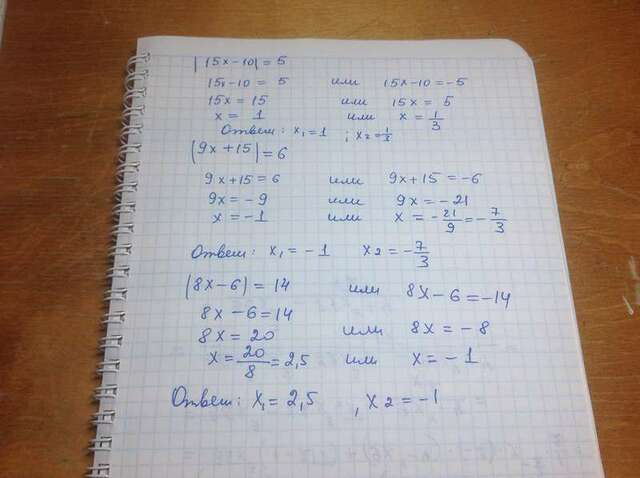 |15x-10|=5
15x-10 = 5 или 15x-10=-5
15x = 15 или 15x = 5
x = 1 или x = 1/3
Ответ: x₁=1 ; x₂=1/3
|9x+15|=6
9x+15=6 или 9x+15=-6
9x = -9 или 9x = -21
x = -1 или x = -21/9 = -7/3
Ответ: x₁ = -1 x₂ = -7/3
|8x-6|=14 или 8x-6=-14
8x-6=14
8x = 20 или 8x = -8
x = 20/8 = 2,5 или x = -1
Ответ: x₁ = 2,5 , x₂ = -1